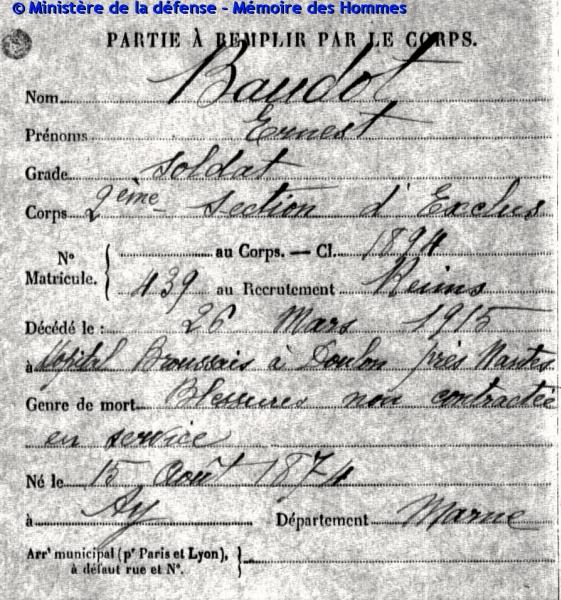 © Ministère de la défense - Mémoire des Hommes
PARTIE À REMPLIR PAR LE CORPS.
Nom Baudot
Prénoms Ernest
Grade soldat
Corps 2ème section d'Exclus
N° Matricule. { au Corps. — Cl. 1894
439 au Recrutement Reims
Décédé le : 26 Mars 1915
à Hôpital Broussais à Doulon près Nantes
Genre de mort Blessures non contractée
en service
Né le 15 Août 1874
à Ay Département Marne
Arrt municipal (pr Paris et Lyon), }
à défaut rue et N°.